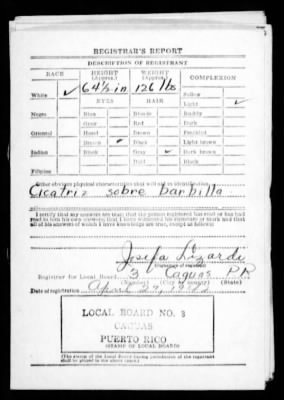 REGISTRAR'S REPORT
DESCRIPTION OF REGISTRANT
RACE HEIGHT (Approx.) WEIGHT (Approx.) COMPLEXION
White ✓ 64½ in 126 lbs Sallow
EYES HAIR Light ✓
Negro Blue Blonde Ruddy
Gray Red Dark
Oriental Hazel Brown Freckled
Brown ✓ Black Light brown
Indian Black Gray ✓ Dark brown
Bald Black
Filipino
Other obvious physical characteristics that will aid in identification
Cicatriz sobre barbilla
I certify that my answers are true; that the person registered has read or has had
read to him his own answers; that I have witnessed his signature or mark and that
all of his answers of which I have knowledge are true, except as follows:
Josefa Lizardi
(Signature of registrar)
Registrar for Local Board 3 Caguas P.R.
(Number) (City or county) (State)
Date of registration April 27, 1942
LOCAL BOARD NO. 3
CAGUAS
PUERTO RICO
(STAMP OF LOCAL BOARD)
(The stamp of the Local Board having jurisdiction of the registrant
shall be placed in the above space.)